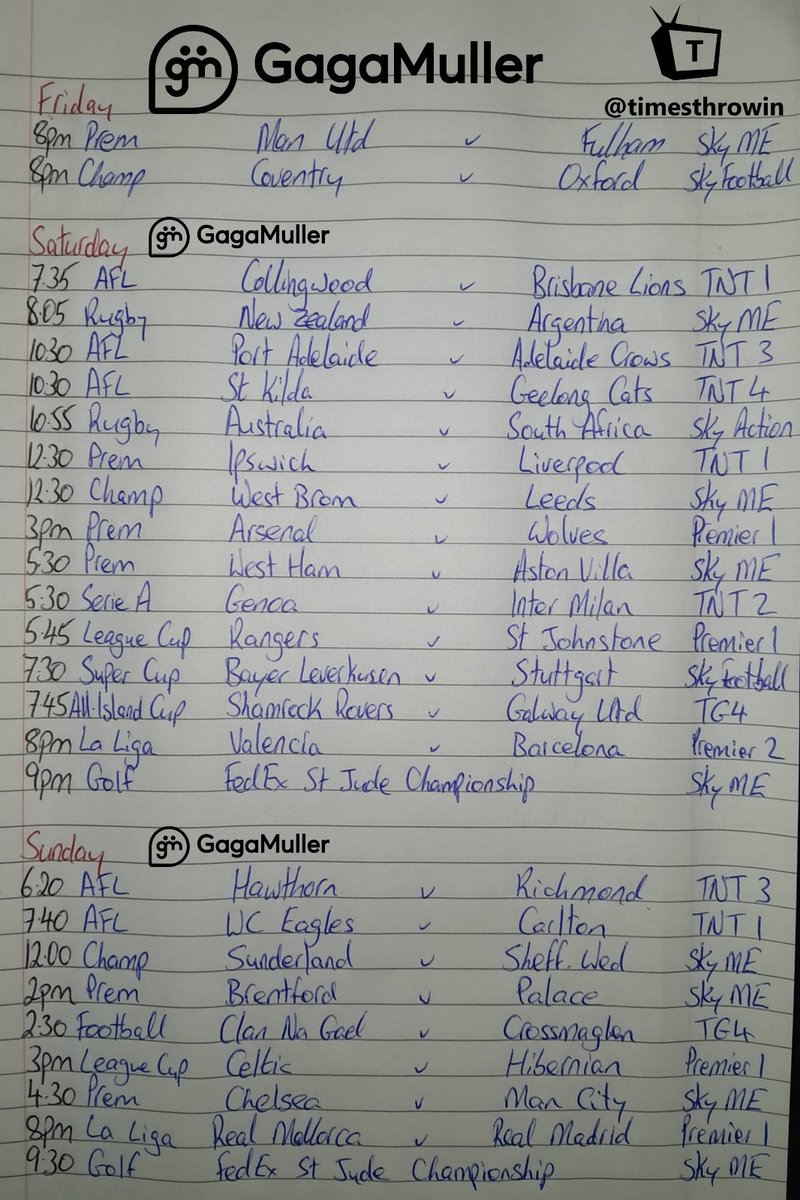 gm GagaMuller
T
@timesthrowin
Friday
8pm Prem Man Utd v Fulham Sky ME
8pm Champ Coventry v Oxford Sky Football
Saturday gm GagaMuller
7.35 AFL Collingwood v Brisbane Lions TNT 1
8.05 Rugby New Zealand v Argentina Sky ME
10.30 AFL Port Adelaide v Adelaide Crows TNT 3
10.30 AFL St Kilda v Geelong Cats TNT 4
10.55 Rugby Australia v South Africa Sky Action
12.30 Prem Ipswich v Liverpool TNT 1
12.30 Champ West Brom v Leeds Sky ME
3pm Prem Arsenal v Wolves Premier 1
5.30 Prem West Ham v Aston Villa Sky ME
5.30 Serie A Genoa v Inter Milan TNT 2
5.45 League Cup Rangers v St Johnstone Premier 1
7.30 Super Cup Bayer Leverkusen v Stuttgart Sky Football
7.45 All-Island Cup Shamrock Rovers v Galway Utd TG4
8pm La Liga Valencia v Barcelona Premier 2
9pm Golf FedEx St Jude Championship Sky ME
Sunday gm GagaMuller
6.20 AFL Hawthorn v Richmond TNT 3
7.40 AFL WC Eagles v Carlton TNT 1
12.00 Champ Sunderland v Sheff. Wed Sky ME
2pm Prem Brentford v Palace Sky ME
2.30 Football Clan Na Gael v Crossmaglen TG4
3pm League Cup Celtic v Hibernian Premier 1
4.30 Prem Chelsea v Man City Sky ME
8pm La Liga Real Mallorca v Real Madrid Premier 1
9.30 Golf FedEx St Jude Championship Sky ME